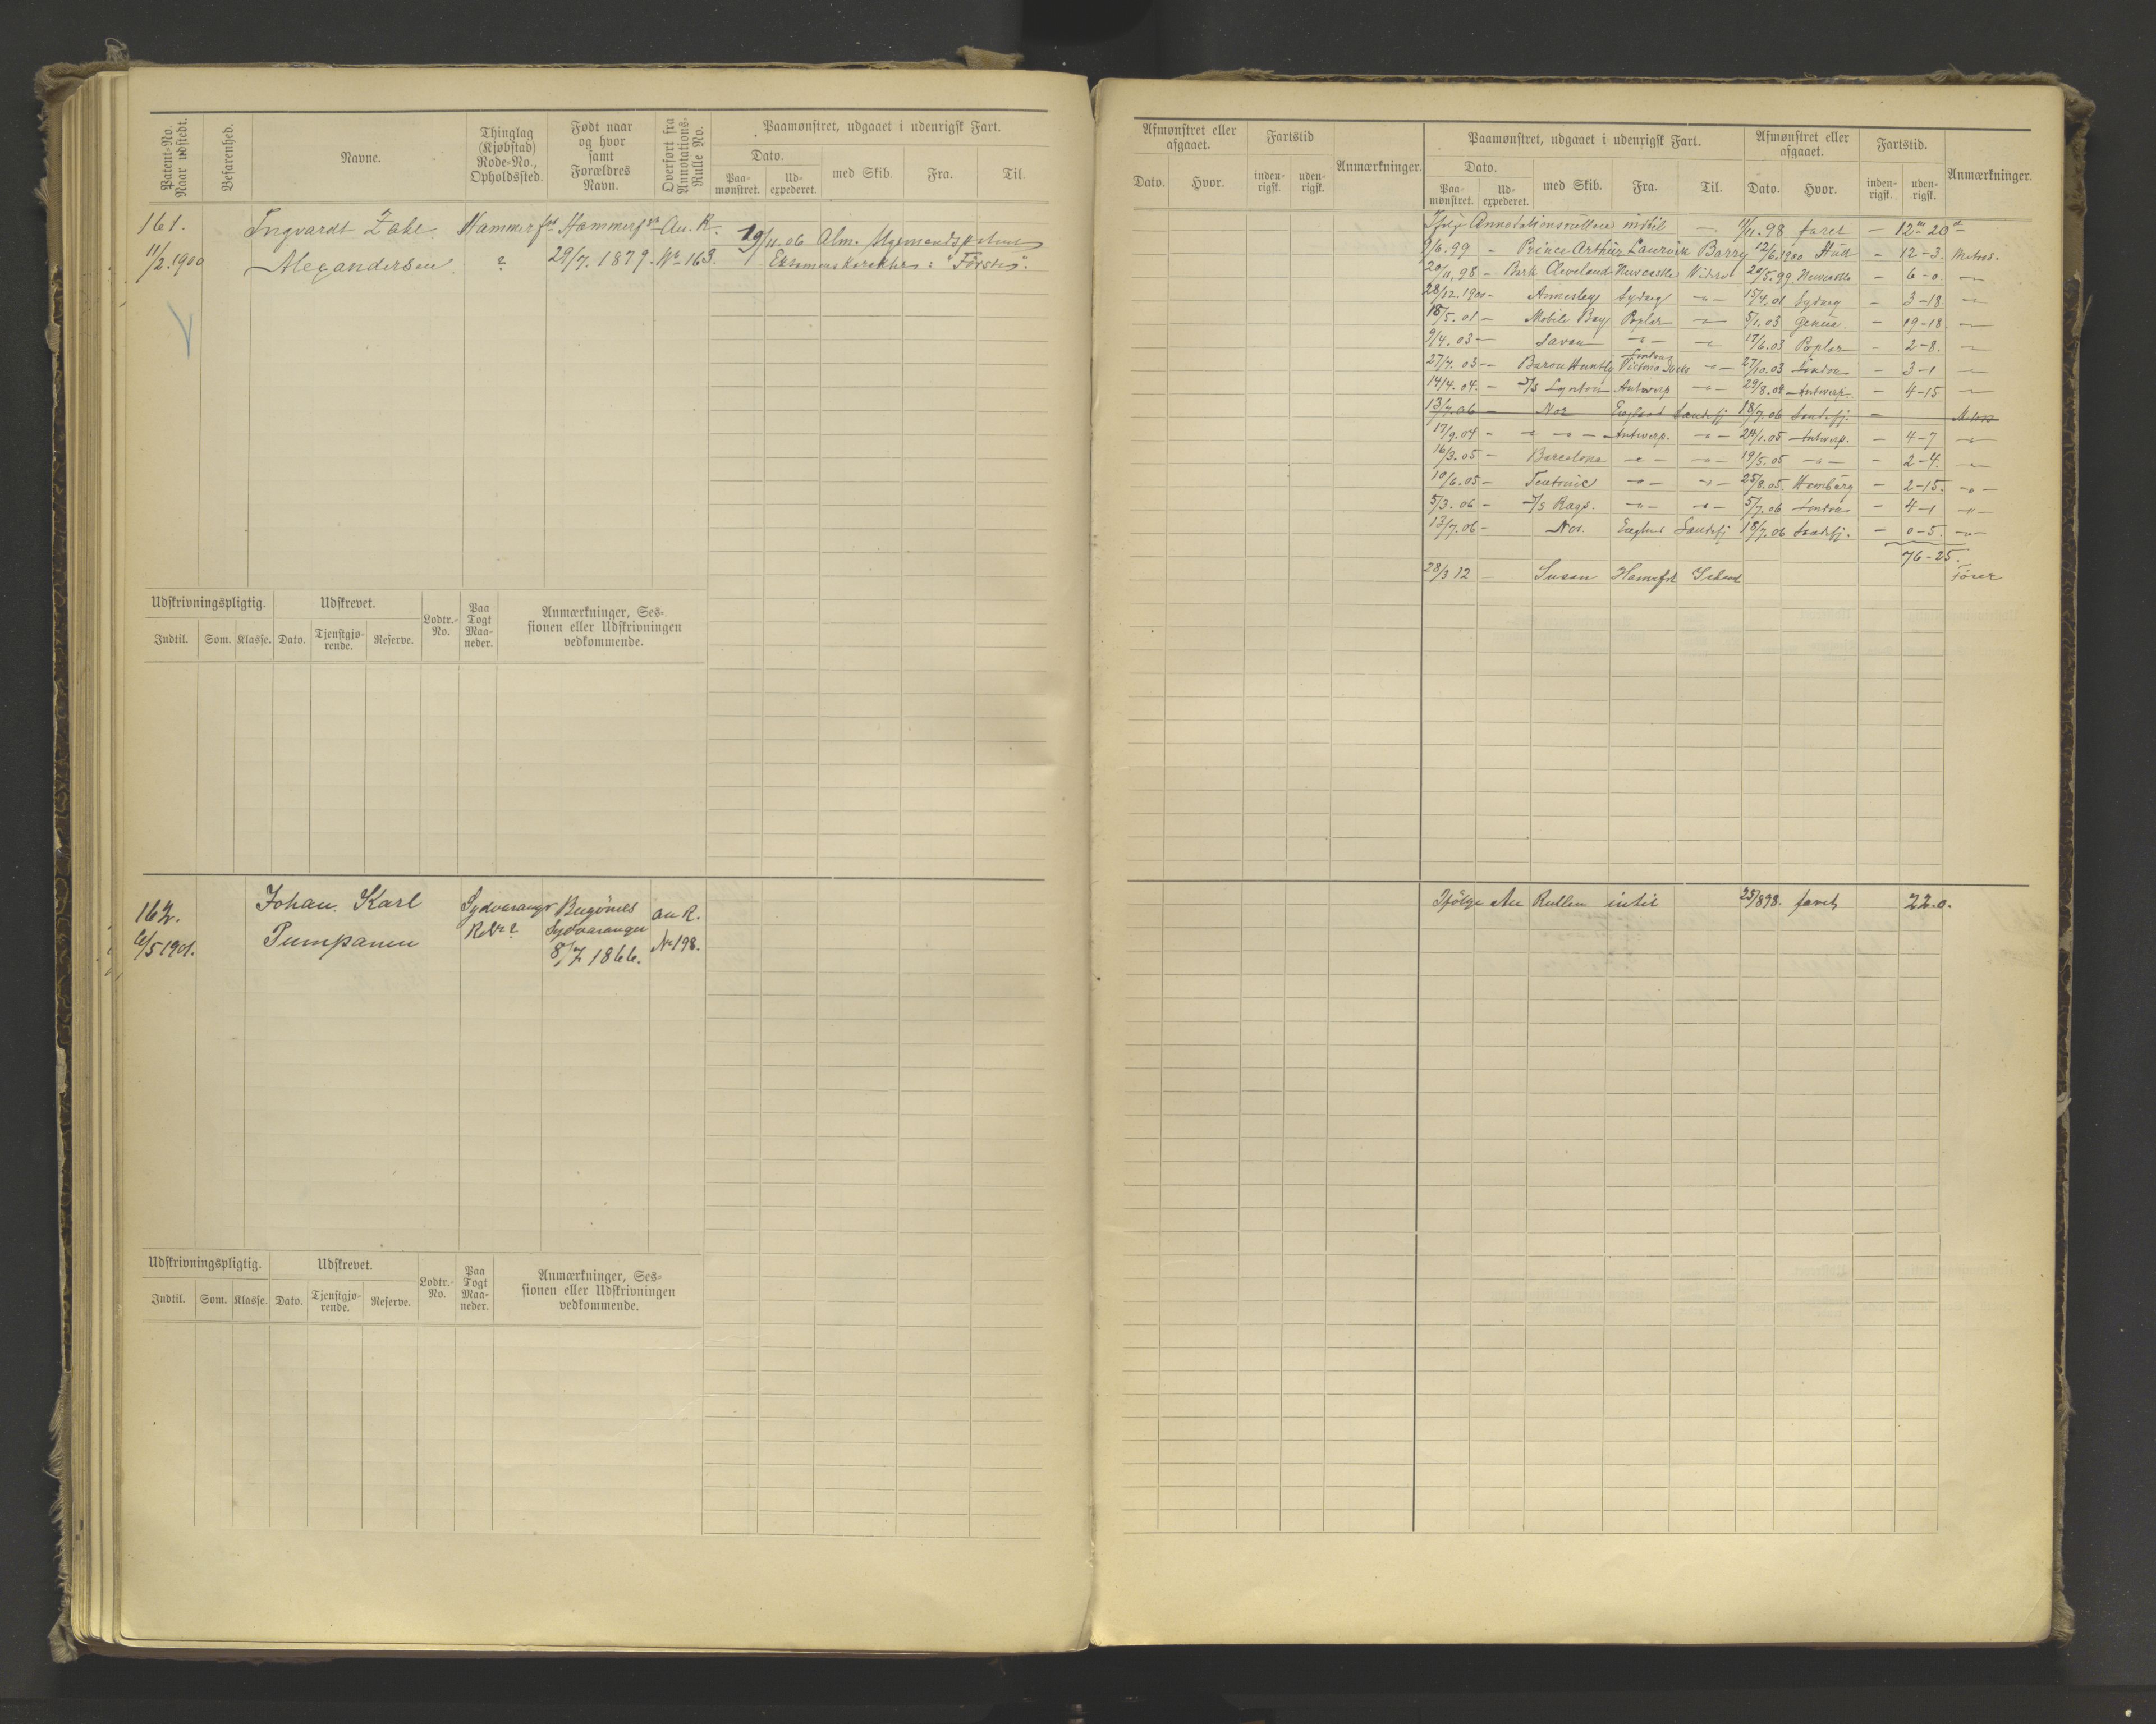 Patent-No. Naar udstedt.
Befarenhed.
Navne.
Thinglag (Kjøbstad) Rode-No., Opholdssted.
Født naar og hvor samt Forældres Navn.
Overført fra Annotations-Rulle No.
Paamønstret, udgaaet i udenrigsk Fart.
Dato.
Paa-mønstret.
Ud-expederet.
med Skib.
Fra.
Til.
161.
11/2.1900
Ingvardt Zahl
Alexandersen
Hammerfst
?
Hammerfst
29/7.1879.
An. R.
No 163.
19/11.06 Alm. Styrmandspatent
Eksamenskarakter: "Første".
Udskrivningspligtig.
Udskrevet.
Lodtr.-No.
Paa Togt Maa-neder.
Anmærkninger, Ses-
sionen eller Udskrivningen
vedkommende.
Indtil.
Som.
Klasse.
Dato.
Tjenstgjø-rende.
Reserve.
162.
6/5 1901.
Johan Karl
Pumpanen
Sydvaranger
R. No ?
Bugönes
Sydvaranger
8/7 1866.
an R.
No 198.
Udskrivningspligtig.
Udskrevet.
Lodtr.-No.
Paa Togt Maa-neder.
Anmærkninger, Ses-
sionen eller Udskrivningen
vedkommende.
Indtil.
Som.
Klasse.
Dato.
Tjenstgjø-rende.
Reserve.
Afmønstret eller afgaaet.
Fartstid
Anmærkninger.
Paamønstret, udgaaet i udenrigsk Fart.
Afmønstret eller afgaaet.
Fartstid.
Anmærkninger.
Dato.
Hvor.
inden-rigsk.
uden-rigsk.
Dato.
Paa-mønstret.
Ud-expederet.
med Skib.
Fra.
Til.
Dato.
Hvor.
inden-rigsk.
uden-rigsk.
Ifölg Annotationsrullen indtil — 11/11.98 faret — 12 m 20 d
9/6.99 - Prince Arthur Laurvik Barry 12/6.1900 Hull - 12-3. Matros.
20/11.98 - Bark Cleveland Newcastle 20/5.99 Newcastle - 6-0 -"-
28/12.1900 - Annesley Sydney -"- 15/4.01 Sydney - 3-18 -"-
18/5.01 - Mobile Bay Poplar -"- 5/1.03 Genua - 19-18 -"-
9/4.03 - Savan -"- -"- 17/6.03 Poplar - 2-8. -"-
27/7.03 - Baron Huntly London Victoria Docks -"- 27/10.03 London - 3-1 -"-
14/4.04. - S/S Lynton Antwerp -"- 29/8.04 Antwerp. - 4-15 -"-
13/7.06 - Nor England Sandefj 18/7.06 Sandefj. - Matros
17/9.04 - -"- - Antwerp. -"- 24/1.05 Antwerp. - 4-7 -"-
16/3.05 - Barcelona -"- -"- 19/5.05 -"- - 2-4. -"-
10/6.05 - Teutonic -"- -"- 25/8.05 Hamburg - 2-15. -"-
5/3.06 - S/S Ragn. -"- -"- 5/7.06 London - 4-1 -"-
13/7.06 - Nor. England Sandefj 18/7.06 Sandefj. - 0-5. -"-
76-25.
28/3 12 - Susan Hamrfst Island Förer
Ifölge An Rullen intil 25/898. faret 22.0.